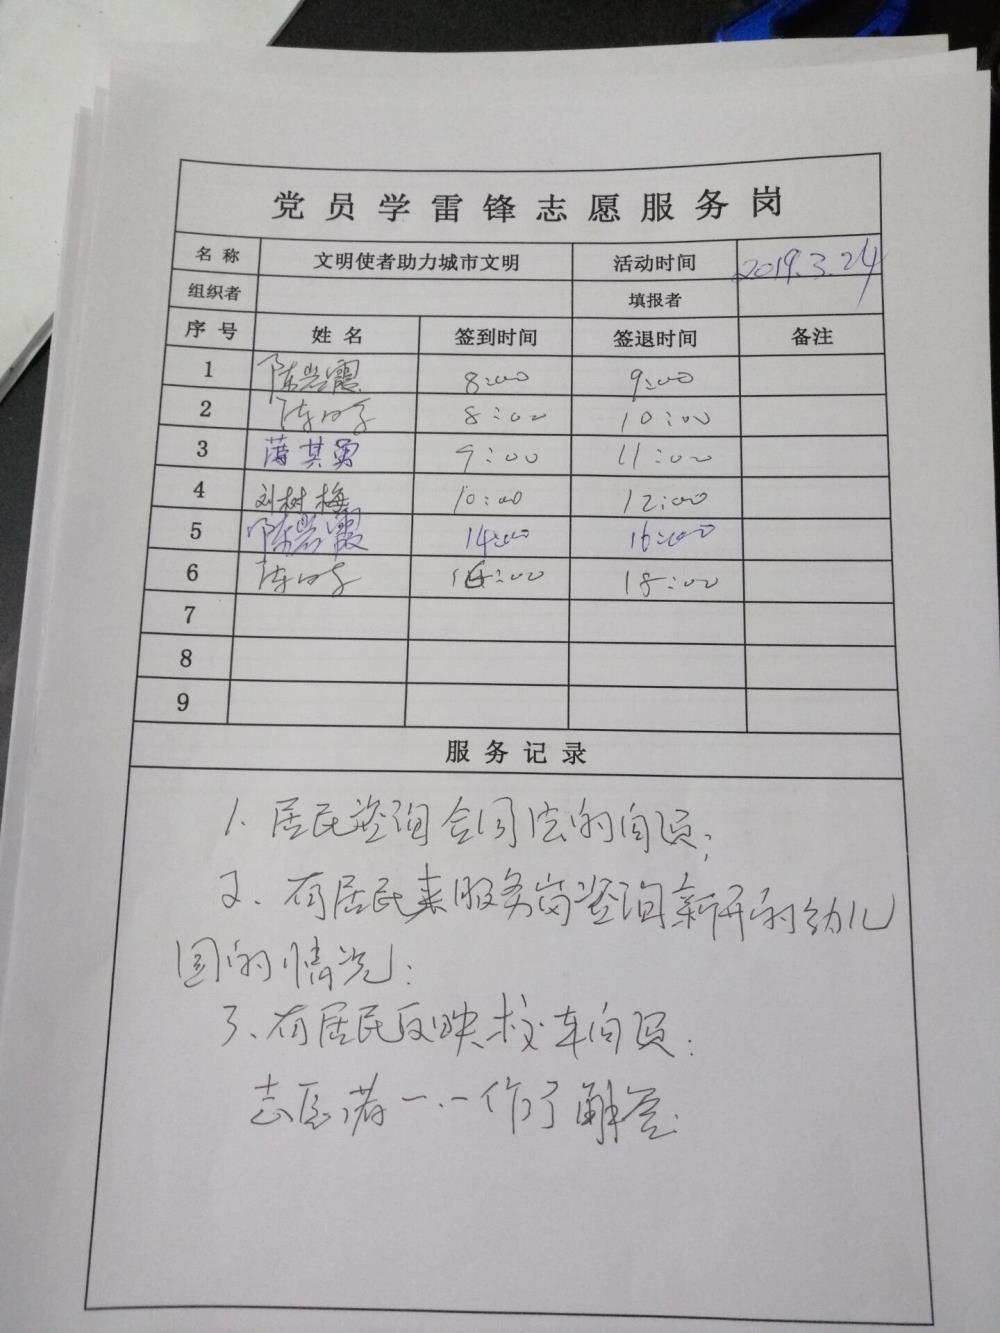 党员学雷锋志愿服务岗
名称 文明使者助力城市文明 活动时间 2019.3.24
组织者 填报者
序号 姓名 签到时间 签退时间 备注
1 陈岩霞 8:00 9:00
2 8:00 10:00
3 蒲其勇 9:00 11:00
4 刘树梅 10:00 12:00
5 陈岩霞 14:00 16:00
6 18:00
7
8
9
服务记录
1、居民咨询合同法的问题;
2、有居民来服务岗咨询新开的幼儿
园的情况;
3、有居民反映校车问题;
志愿者一一作了解答.